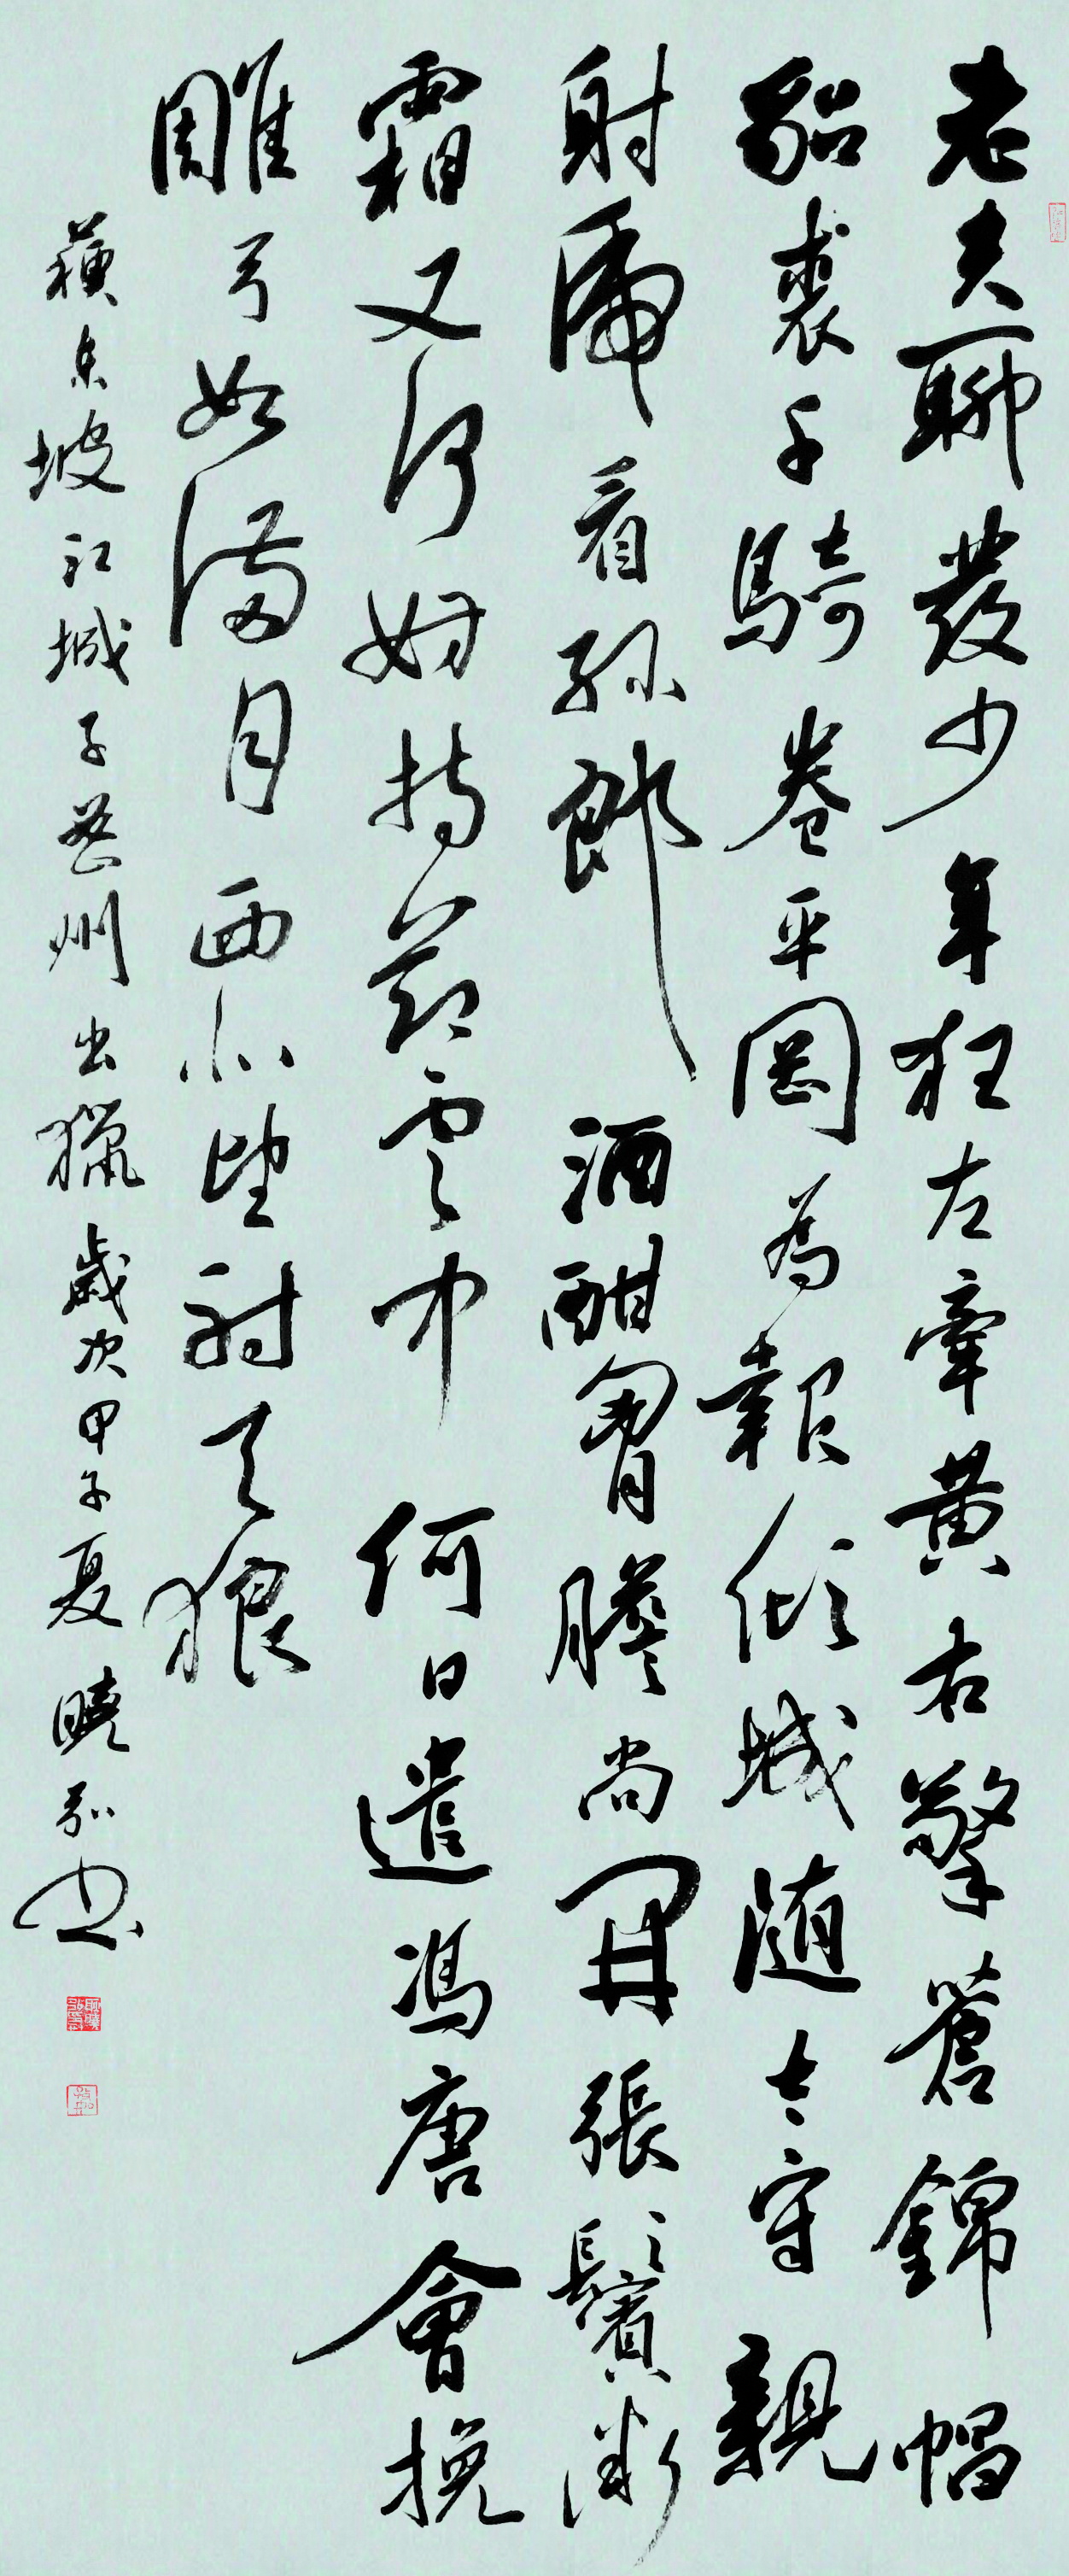 老夫聊發少年狂左牽黃右擎蒼錦帽
貂裘千騎卷平岡為報傾城隨太守親
射虎看孫郎酒酣胷膽尚開張鬢微
霜又何妨持節雲中何日遣馮唐會挽
雕弓如滿月西北望射天狼
蘇東坡江城子密州出獵歲次甲子夏曉弘書